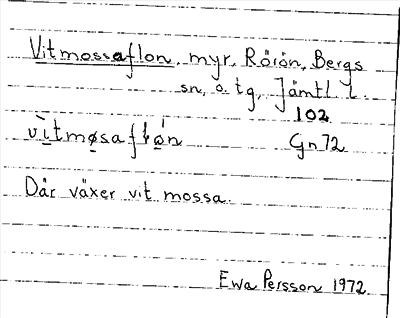 Vitmossaflon, myr, Röiön, Bergs
sn, o. tg, Jämtl. l.
102
vìtmøsaflø̀n Gn 72
Där växer vit mossa.
Ewa Persson 1972